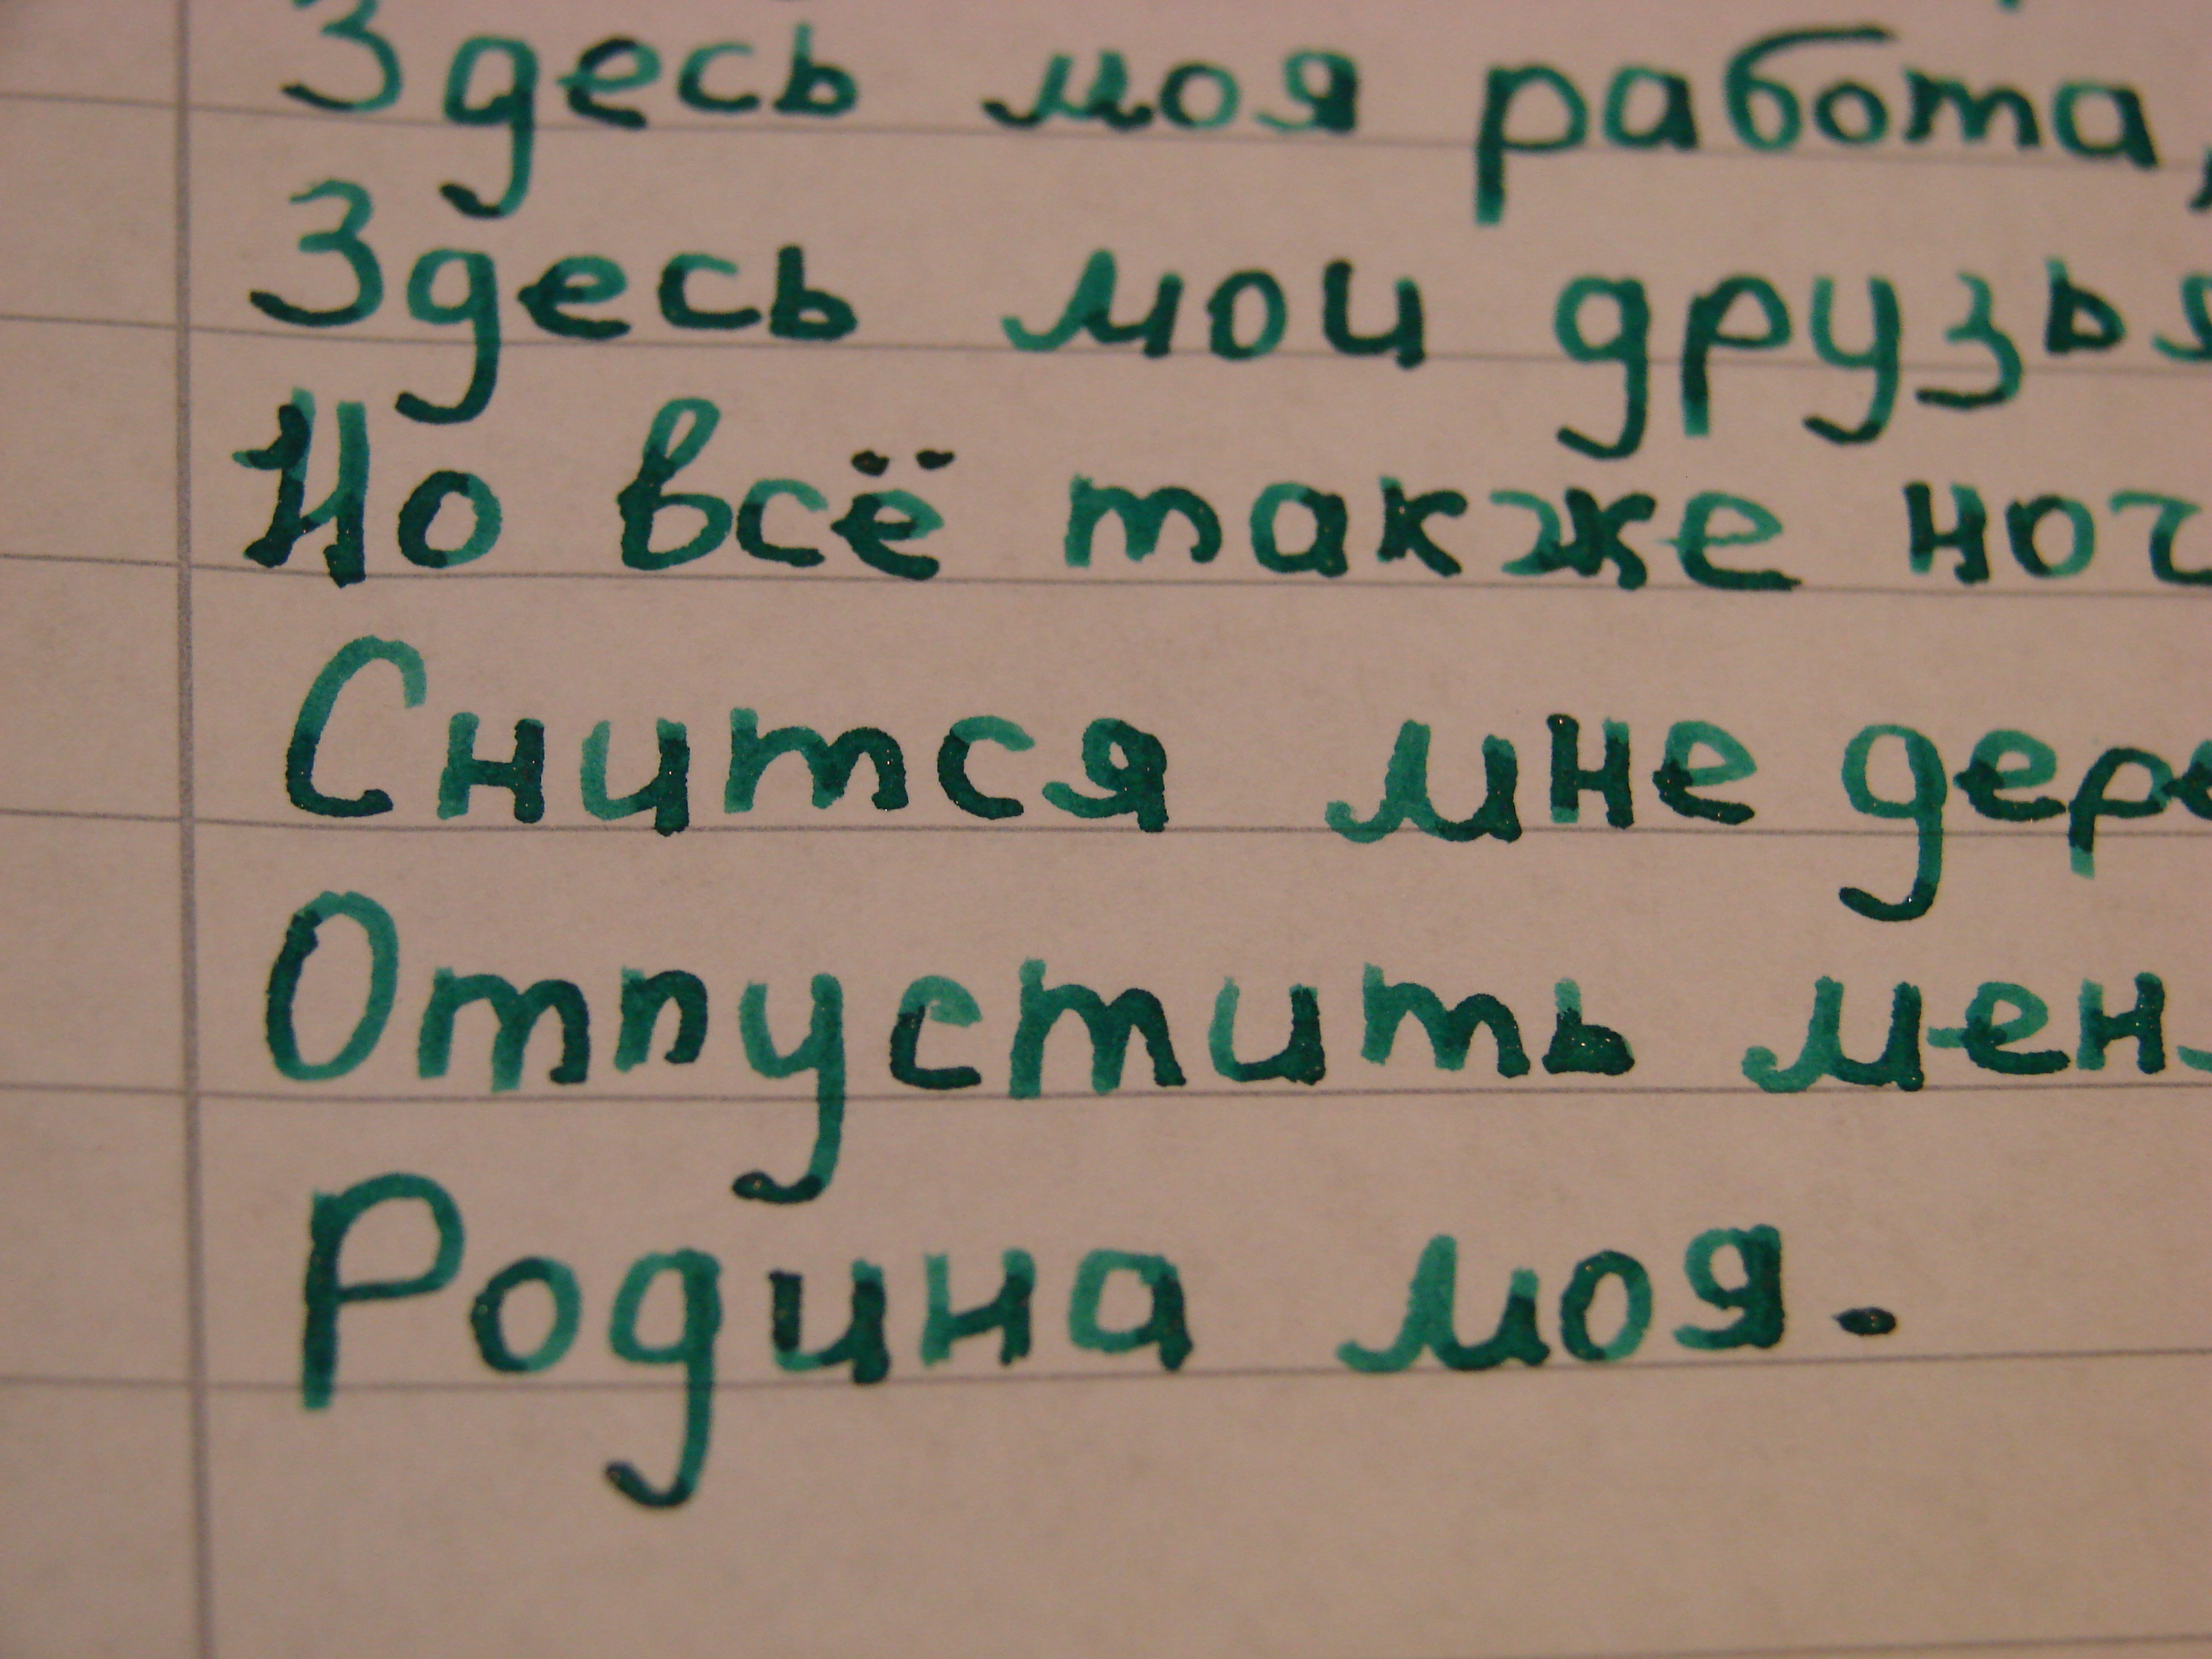 Здесь моя работа,
Здесь мои друзья
Но всё также
Снится мне
Отпустить
Родина моя.